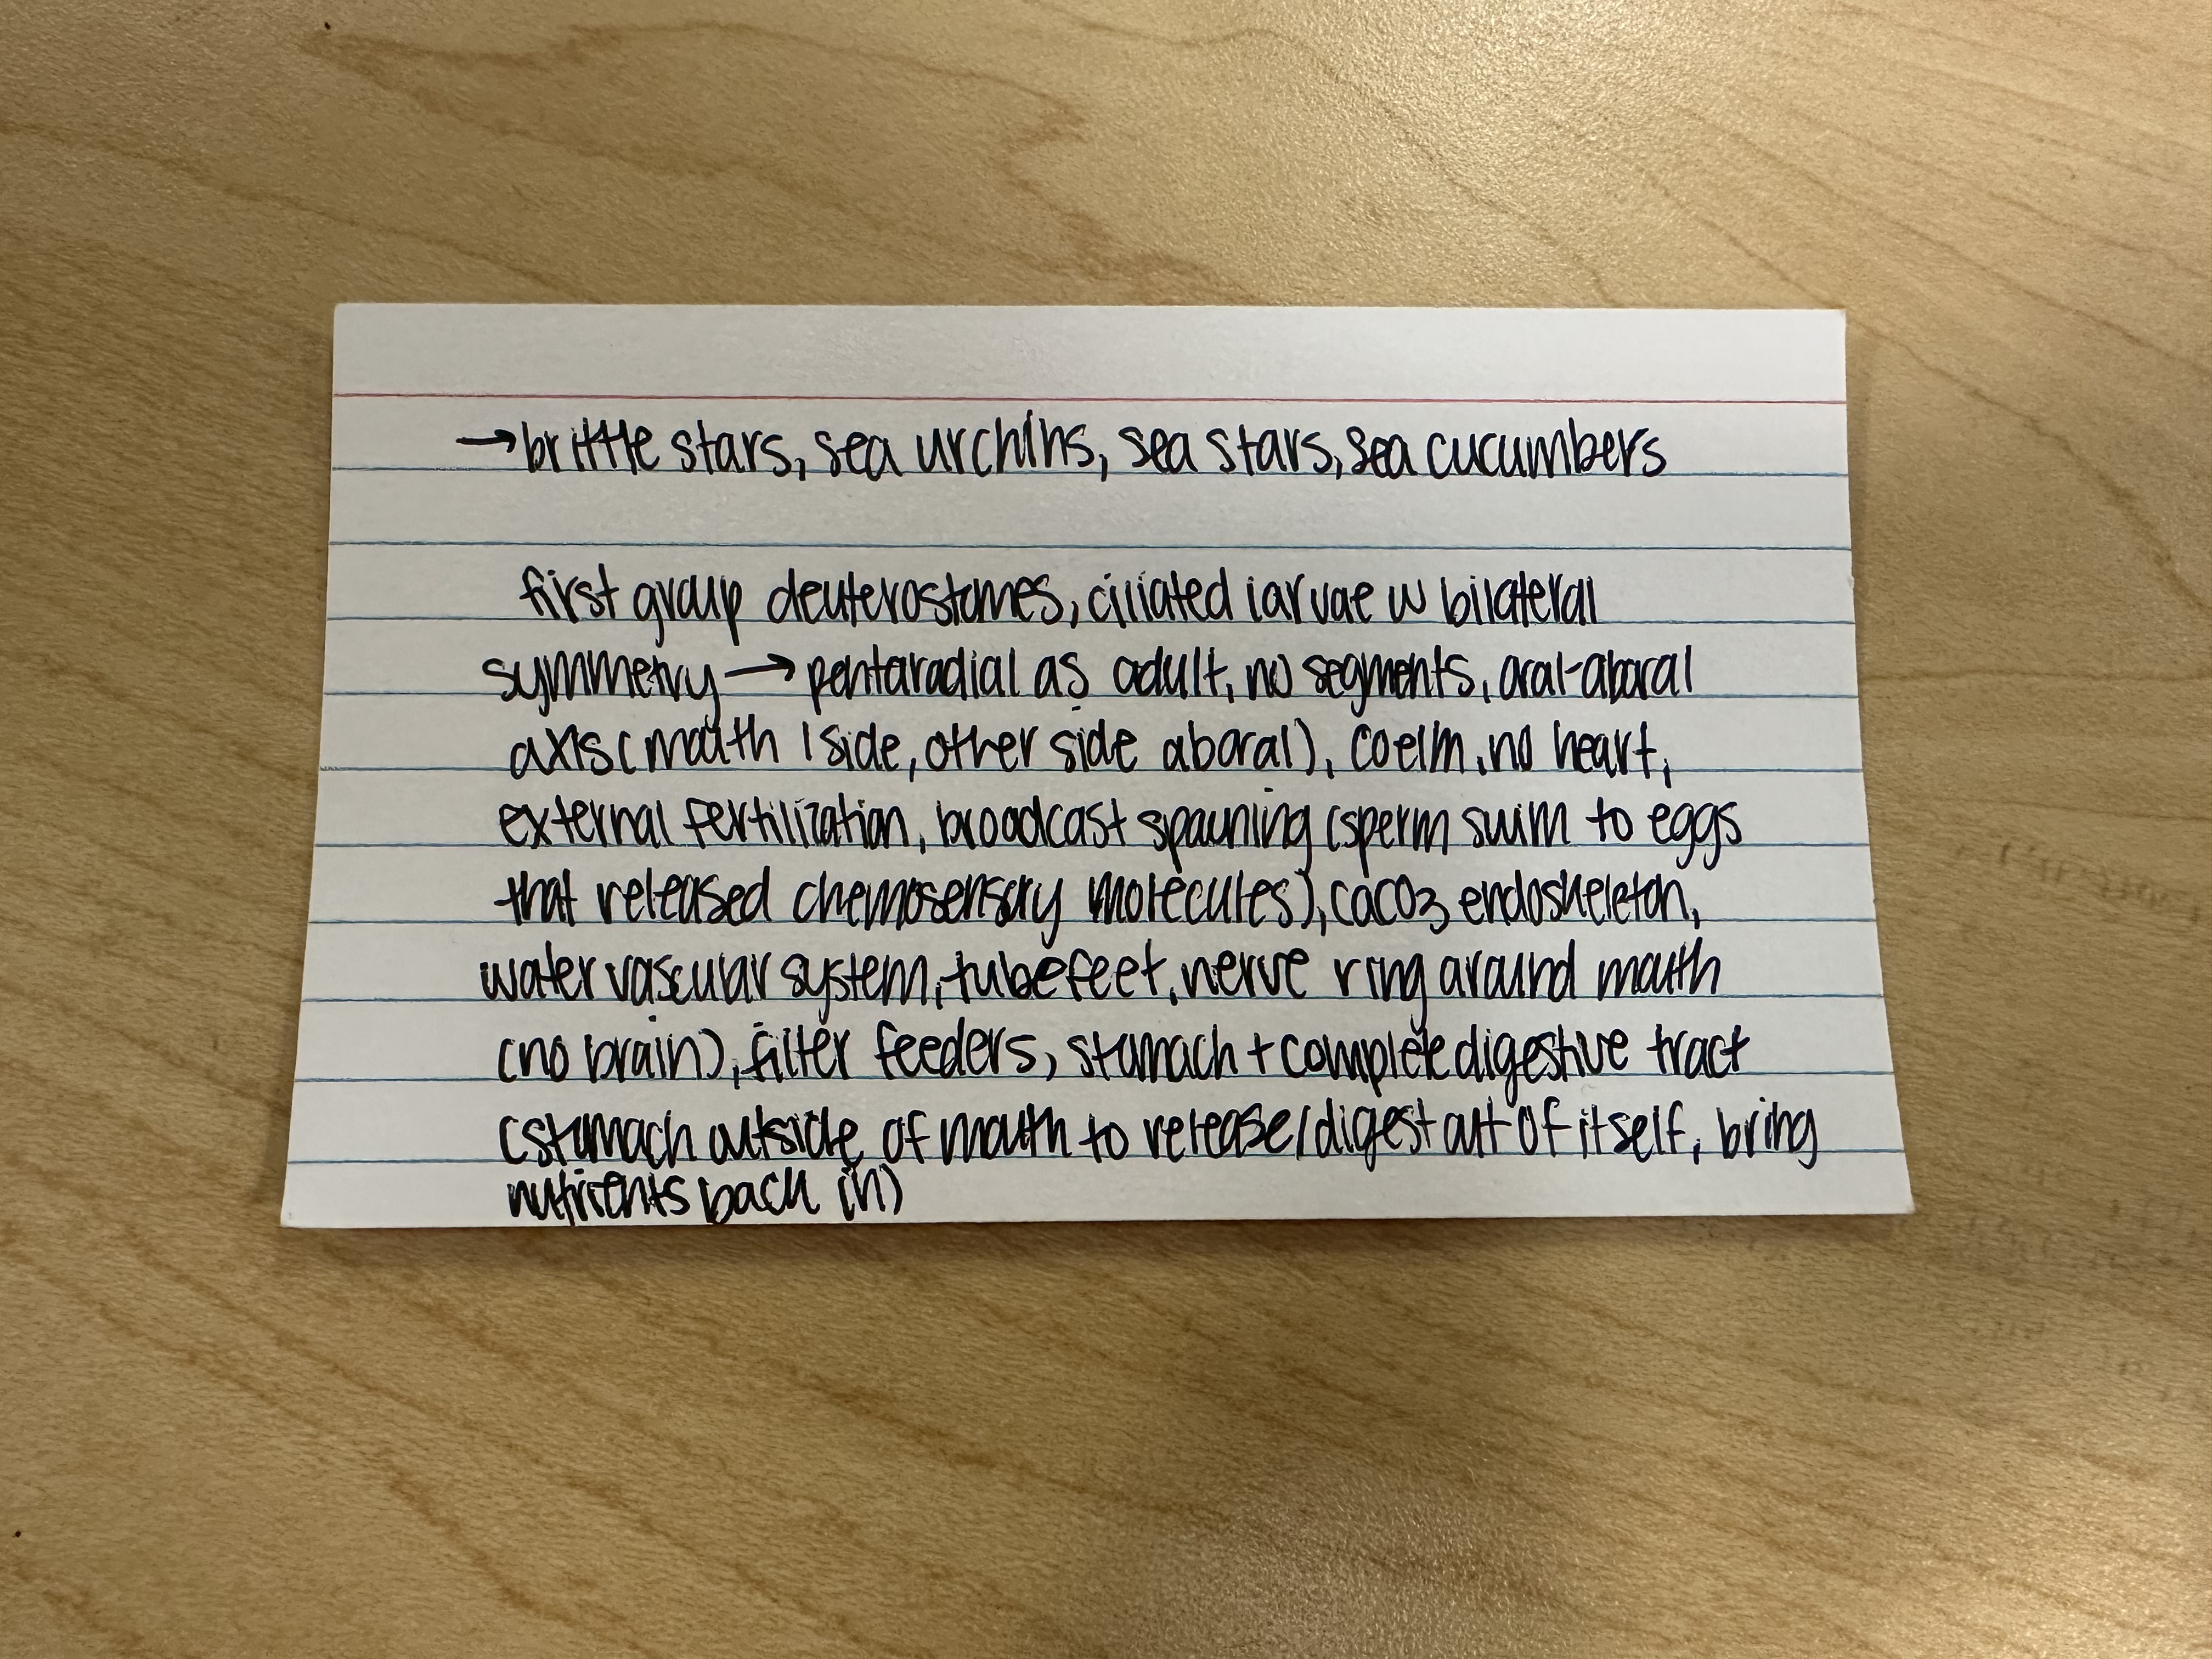 →brittle stars, sea urchins, sea stars, sea cucumbers
first group deuterostomes, ciliated larvae w bilateral
symmetry → pentaradial as adult, no segments, oral-aboral
axis (mouth 1 side, other side aboral), coelm, no heart,
external fertilization, broadcast spawning (sperm swim to eggs
that released chemosensory molecules), CaCO3 endoskeleton,
water vascular system, tube feet, nerve ring around mouth
(no brain), filter feeders, stomach + complete digestive tract
(stomach outside of mouth to release/digest out of itself, bring
nutrients back in)